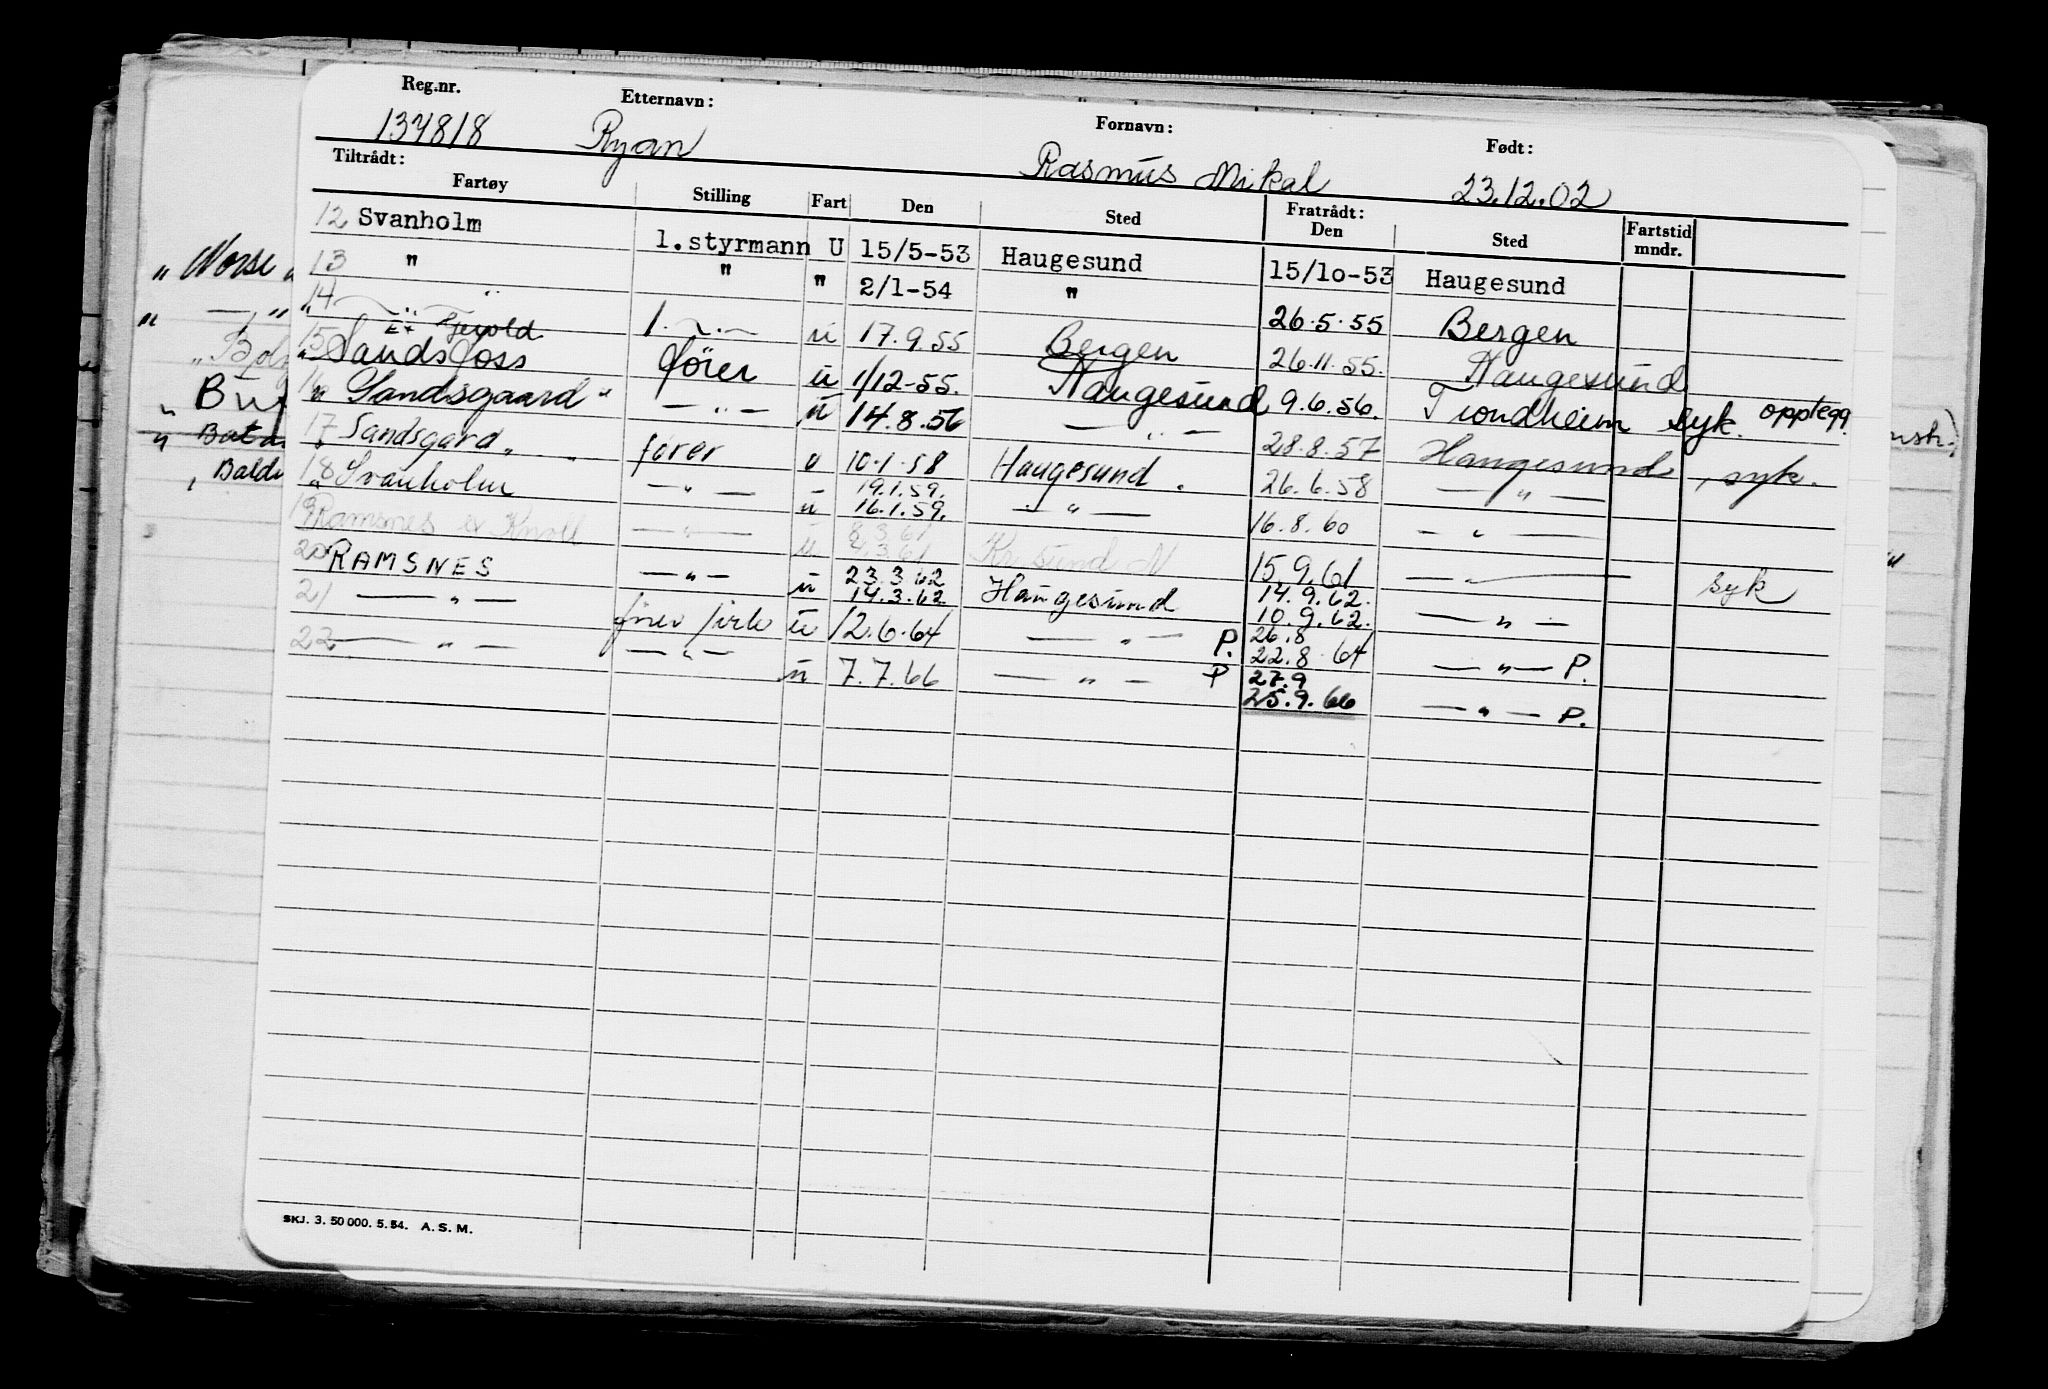 Reg.nr. Etternavn: Fornavn: Født:
137818 Ryan Rasmus Mikal 23.12.02
Tiltrådt: Fratrådt:
Fartøy Stilling Fart Den Sted Den Sted Fartstid mndr.
12 Svanholm 1.styrmann U 15/5-53 Haugesund 15/10-53 Haugesund
13 " " " 2/1-54 " 26.5.55 Bergen
14 — " — 1. — " — u 17.9.55 Bergen 26.11.55. Haugesund
Ex Gjevold
15 Sandsfoss fører u 1/12-55. Haugesund 9.6.56. Trondheim syk. opplegg.
16 "Sandsgaard" — " — u 14.8.56 — " — 28.8.57 Haugesund, syk.
17 Sandsgard " fører u 10.1.58 Haugesund. 26.6.58 — " —
18 Svanholm — " — u 19.1.59. 16.1.59. — " — 16.8.60 — " —
19 Ramsnes ex Knoll — " — u Kr. sund N 15.9.61 — " — syk
20 RAMSNES — " — u 23.3.62 14.3.62 Haugesund 14.9.62. 10.9.62. — " —
21 — " — fører u 12.6.64 — " — P. 26.8 22.8.64 — " — P.
22 — " — — " — u 7.7.66 — " — P 27.9 25.9.66 — " — P.
SKJ. 3. 50 000. 5. 54. A. S. M.
" Norse